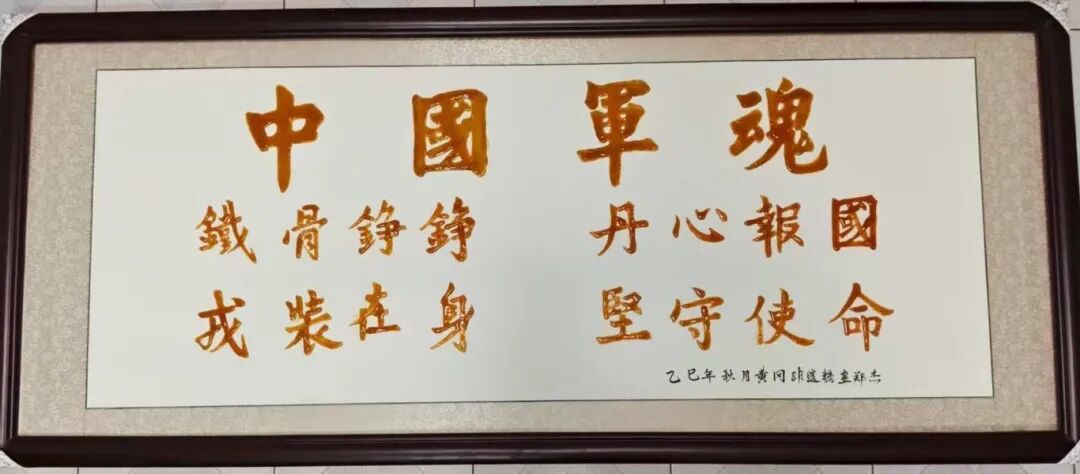 中國軍魂
鐵骨錚錚 丹心報國
戎裝在身 堅守使命
乙巳年秋月黄冈非遗糖画郑杰